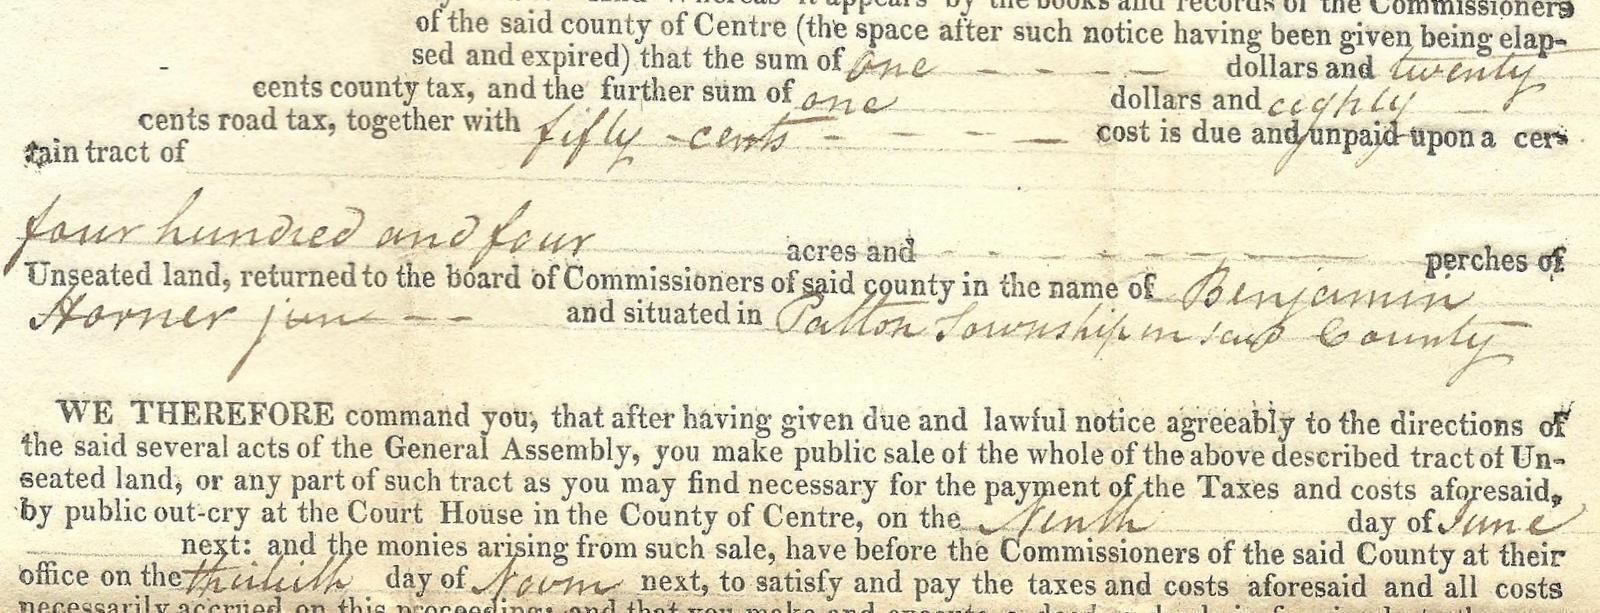 Whereas it appears by the books and records of the Commissioners
of the said county of Centre (the space after such notice having been given being elap-
sed and expired) that the sum of one - - - - dollars and twenty
cents county tax, and the further sum of one dollars and eighty
cents road tax, together with fifty - cents - - - - cost is due and unpaid upon a cer-
tain tract of
four hundred and four acres and - - - - - - perches of
Unseated land, returned to the board of Commissioners of said county in the name of Benjamin
Horner jun - - and situated in Patton Township in said County
WE THEREFORE command you, that after having given due and lawful notice agreeably to the directions of
the said several acts of the General Assembly, you make public sale of the whole of the above described tract of Un-
seated land, or any part of such tract as you may find necessary for the payment of the Taxes and costs aforesaid,
by public out-cry at the Court House in the County of Centre, on the Ninth day of June
next: and the monies arising from such sale, have before the Commissioners of the said County at their
office on the day of Novm next, to satisfy and pay the taxes and costs aforesaid and all costs
necessarily accrued on this proceeding; and that you make and execute a deed